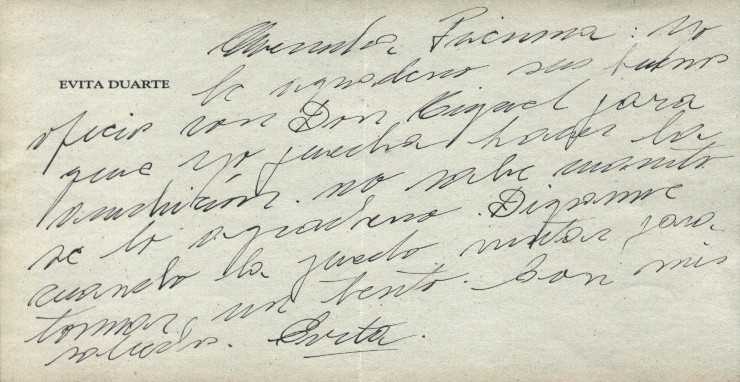 Querida : Yo
EVITA DUARTE
le agradesco sus buenos
oficio con Don Miguel para
que yo pueda hacer la
audicion. no sabe cuanto
se lo agradesco. Digame
cuando la puedo invitar para
tomar un Con mis
saludos. Evita.